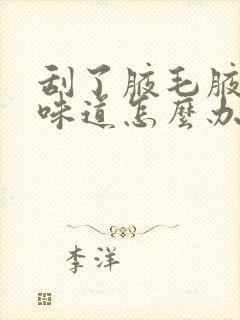 刮了腋毛腋
味道怎麼办
李洋